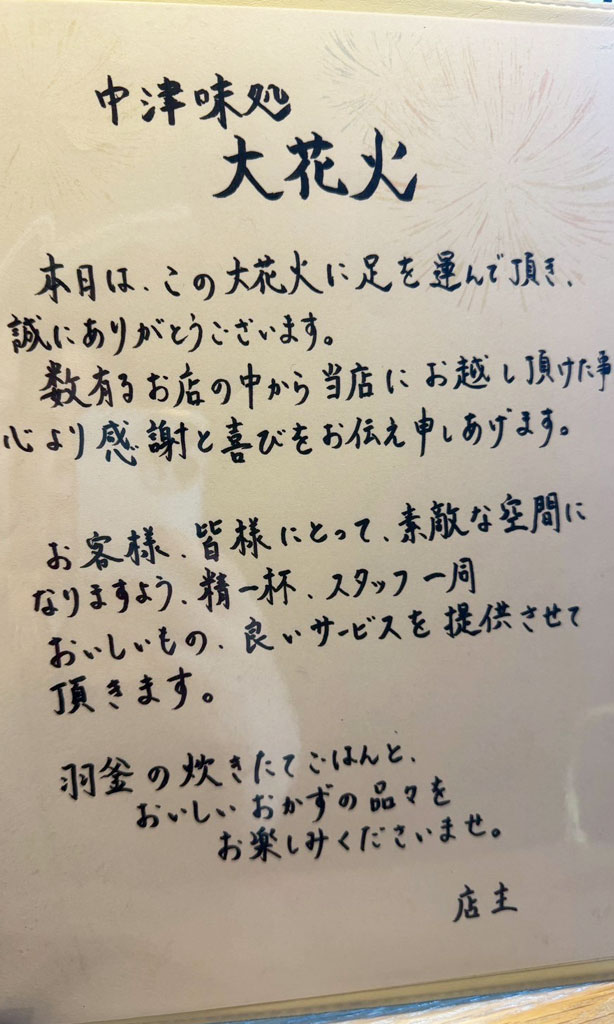 中津味処
大花火
本日は、この大花火に足を運んで頂き、
誠にありがとうございます。
数有るお店の中から当店にお越し頂けた事
心より感謝と喜びをお伝え申しあげます。
お客様、皆様にとって、素敵な空間に
なりますよう、精一杯、スタッフ一同
おいしいもの、良いサービスを提供させて
頂きます。
羽釜の炊きたてごはんと、
おいしいおかずの品々を
お楽しみくださいませ。
店主